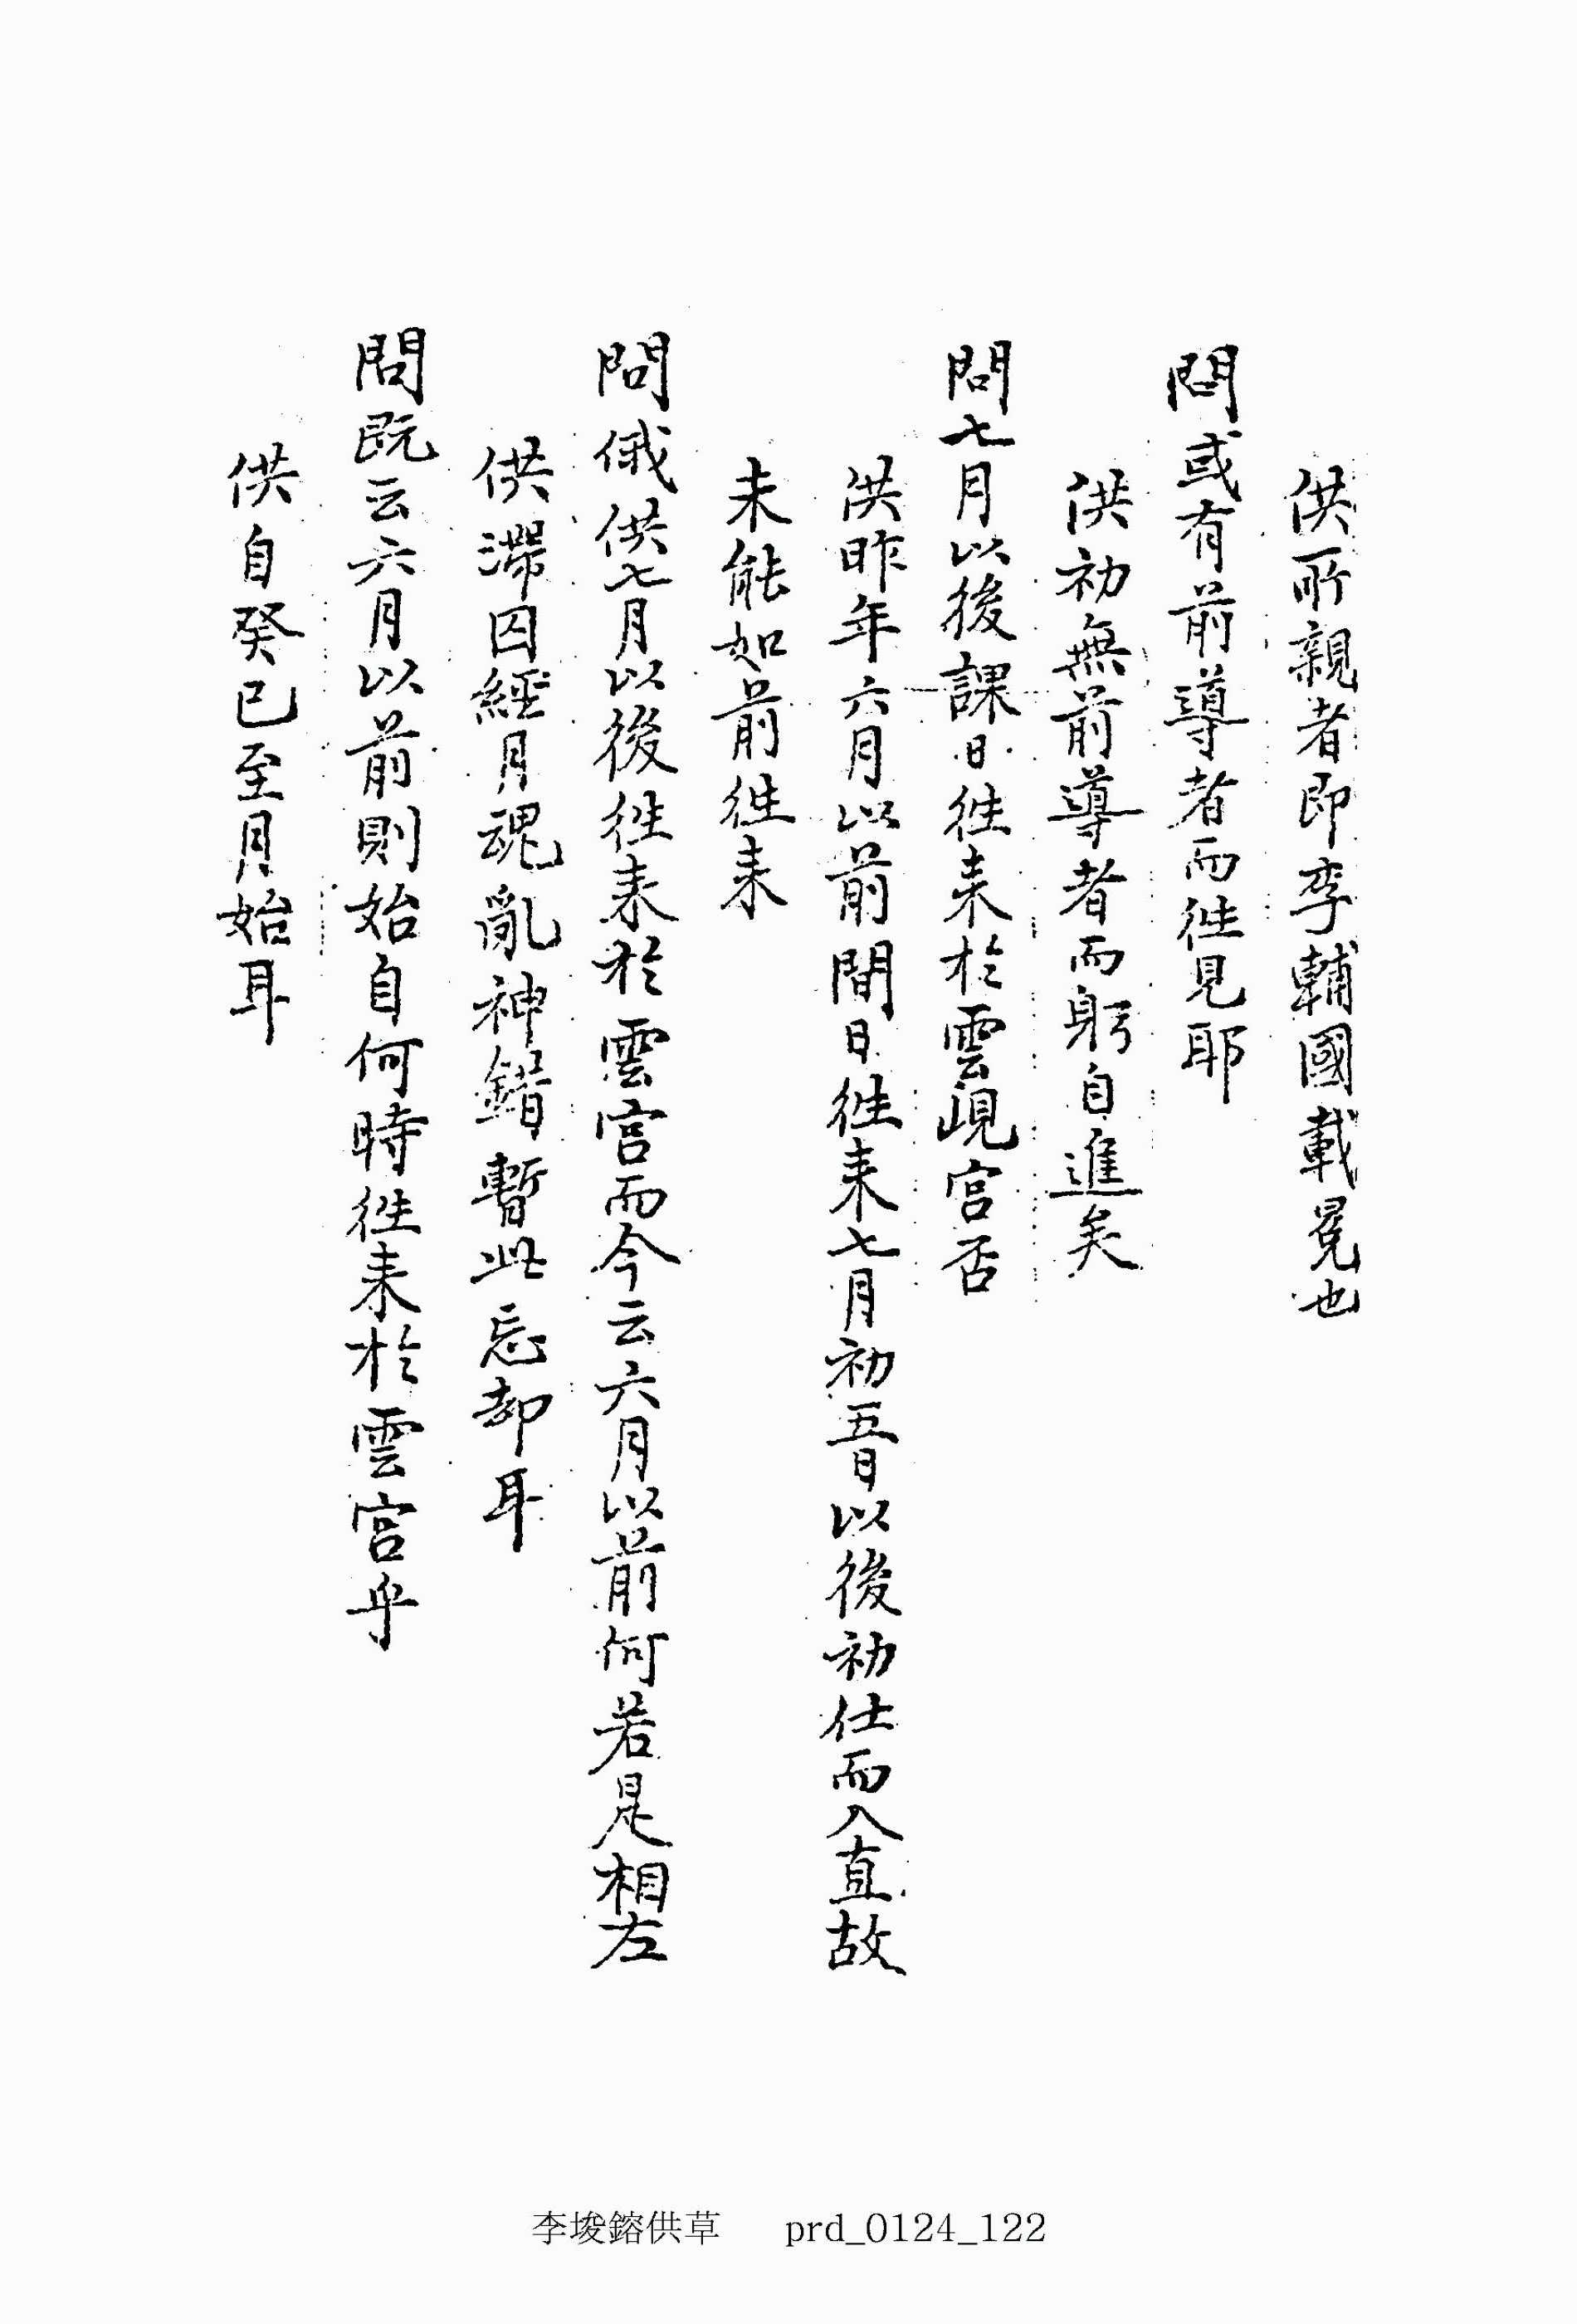 供所親者即李輔國載冕也
問或有前導者而徃見耶
供初無前導者而躬自進矣
問七月以後課日徃来於雲峴宮否
供昨年六月以前間日徃来七月初五日以後初仕而入直故
未能如前徃来
問俄供七月以後徃来於雲宮而今云六月以前何若是相左
供滯囚經月魂亂神錯暫此忘却耳
問旣云六月以前則始自何時徃来於雲宮乎
供自癸巳至月始耳
李埈鎔供草 prd_0124_122